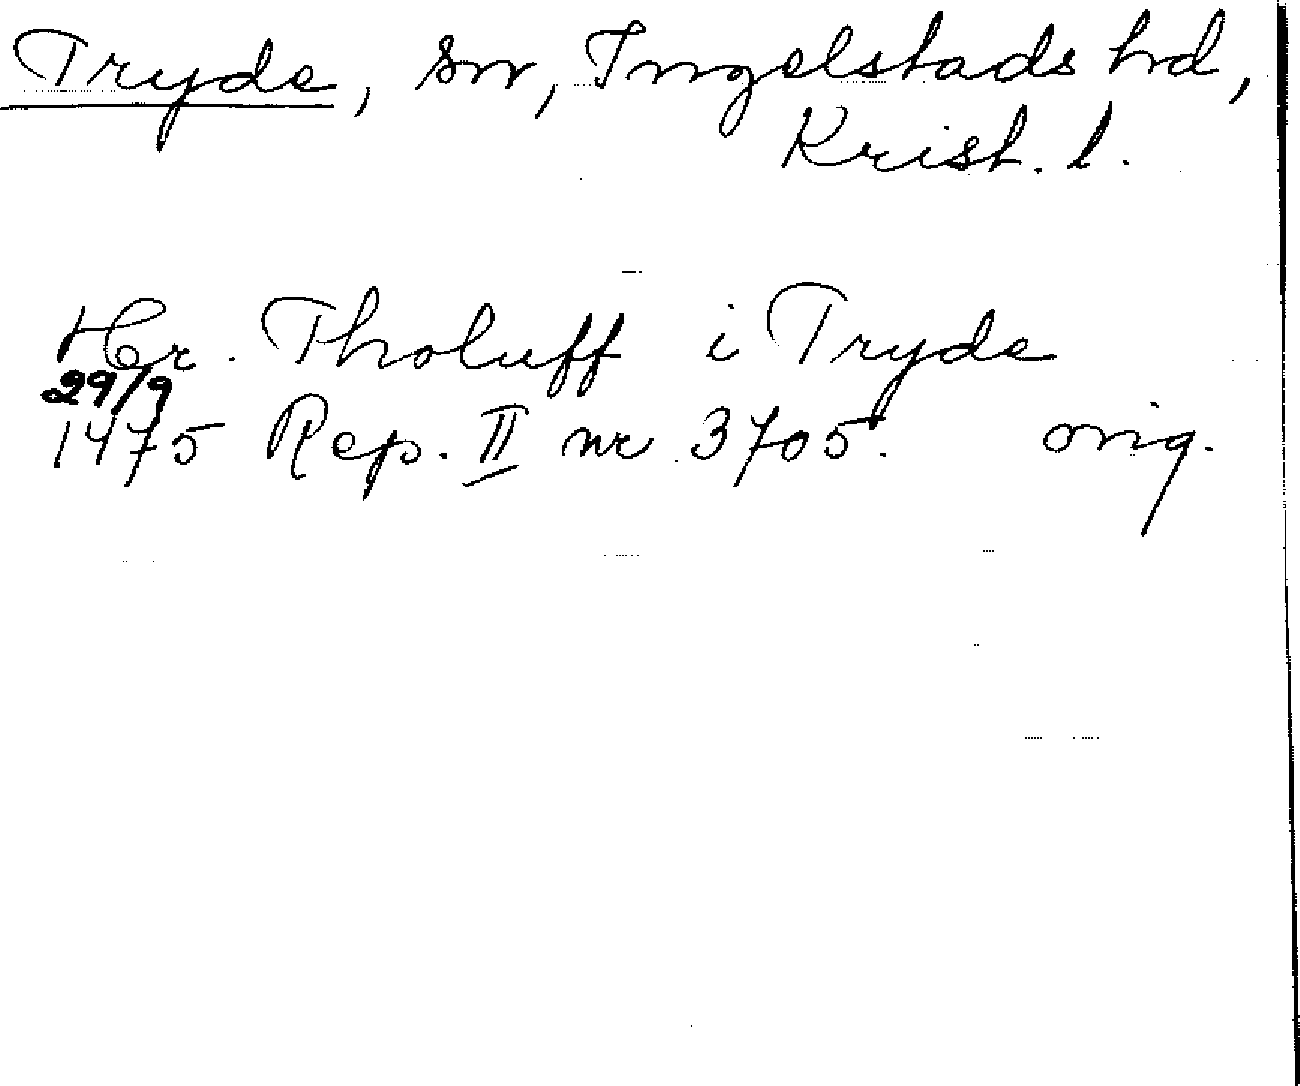 Tryde, sn, Ingelstads hd,
Krist. l.
Her. Tholuff i Tryde
29/9
1475 Rep. II nr 3705. orig.